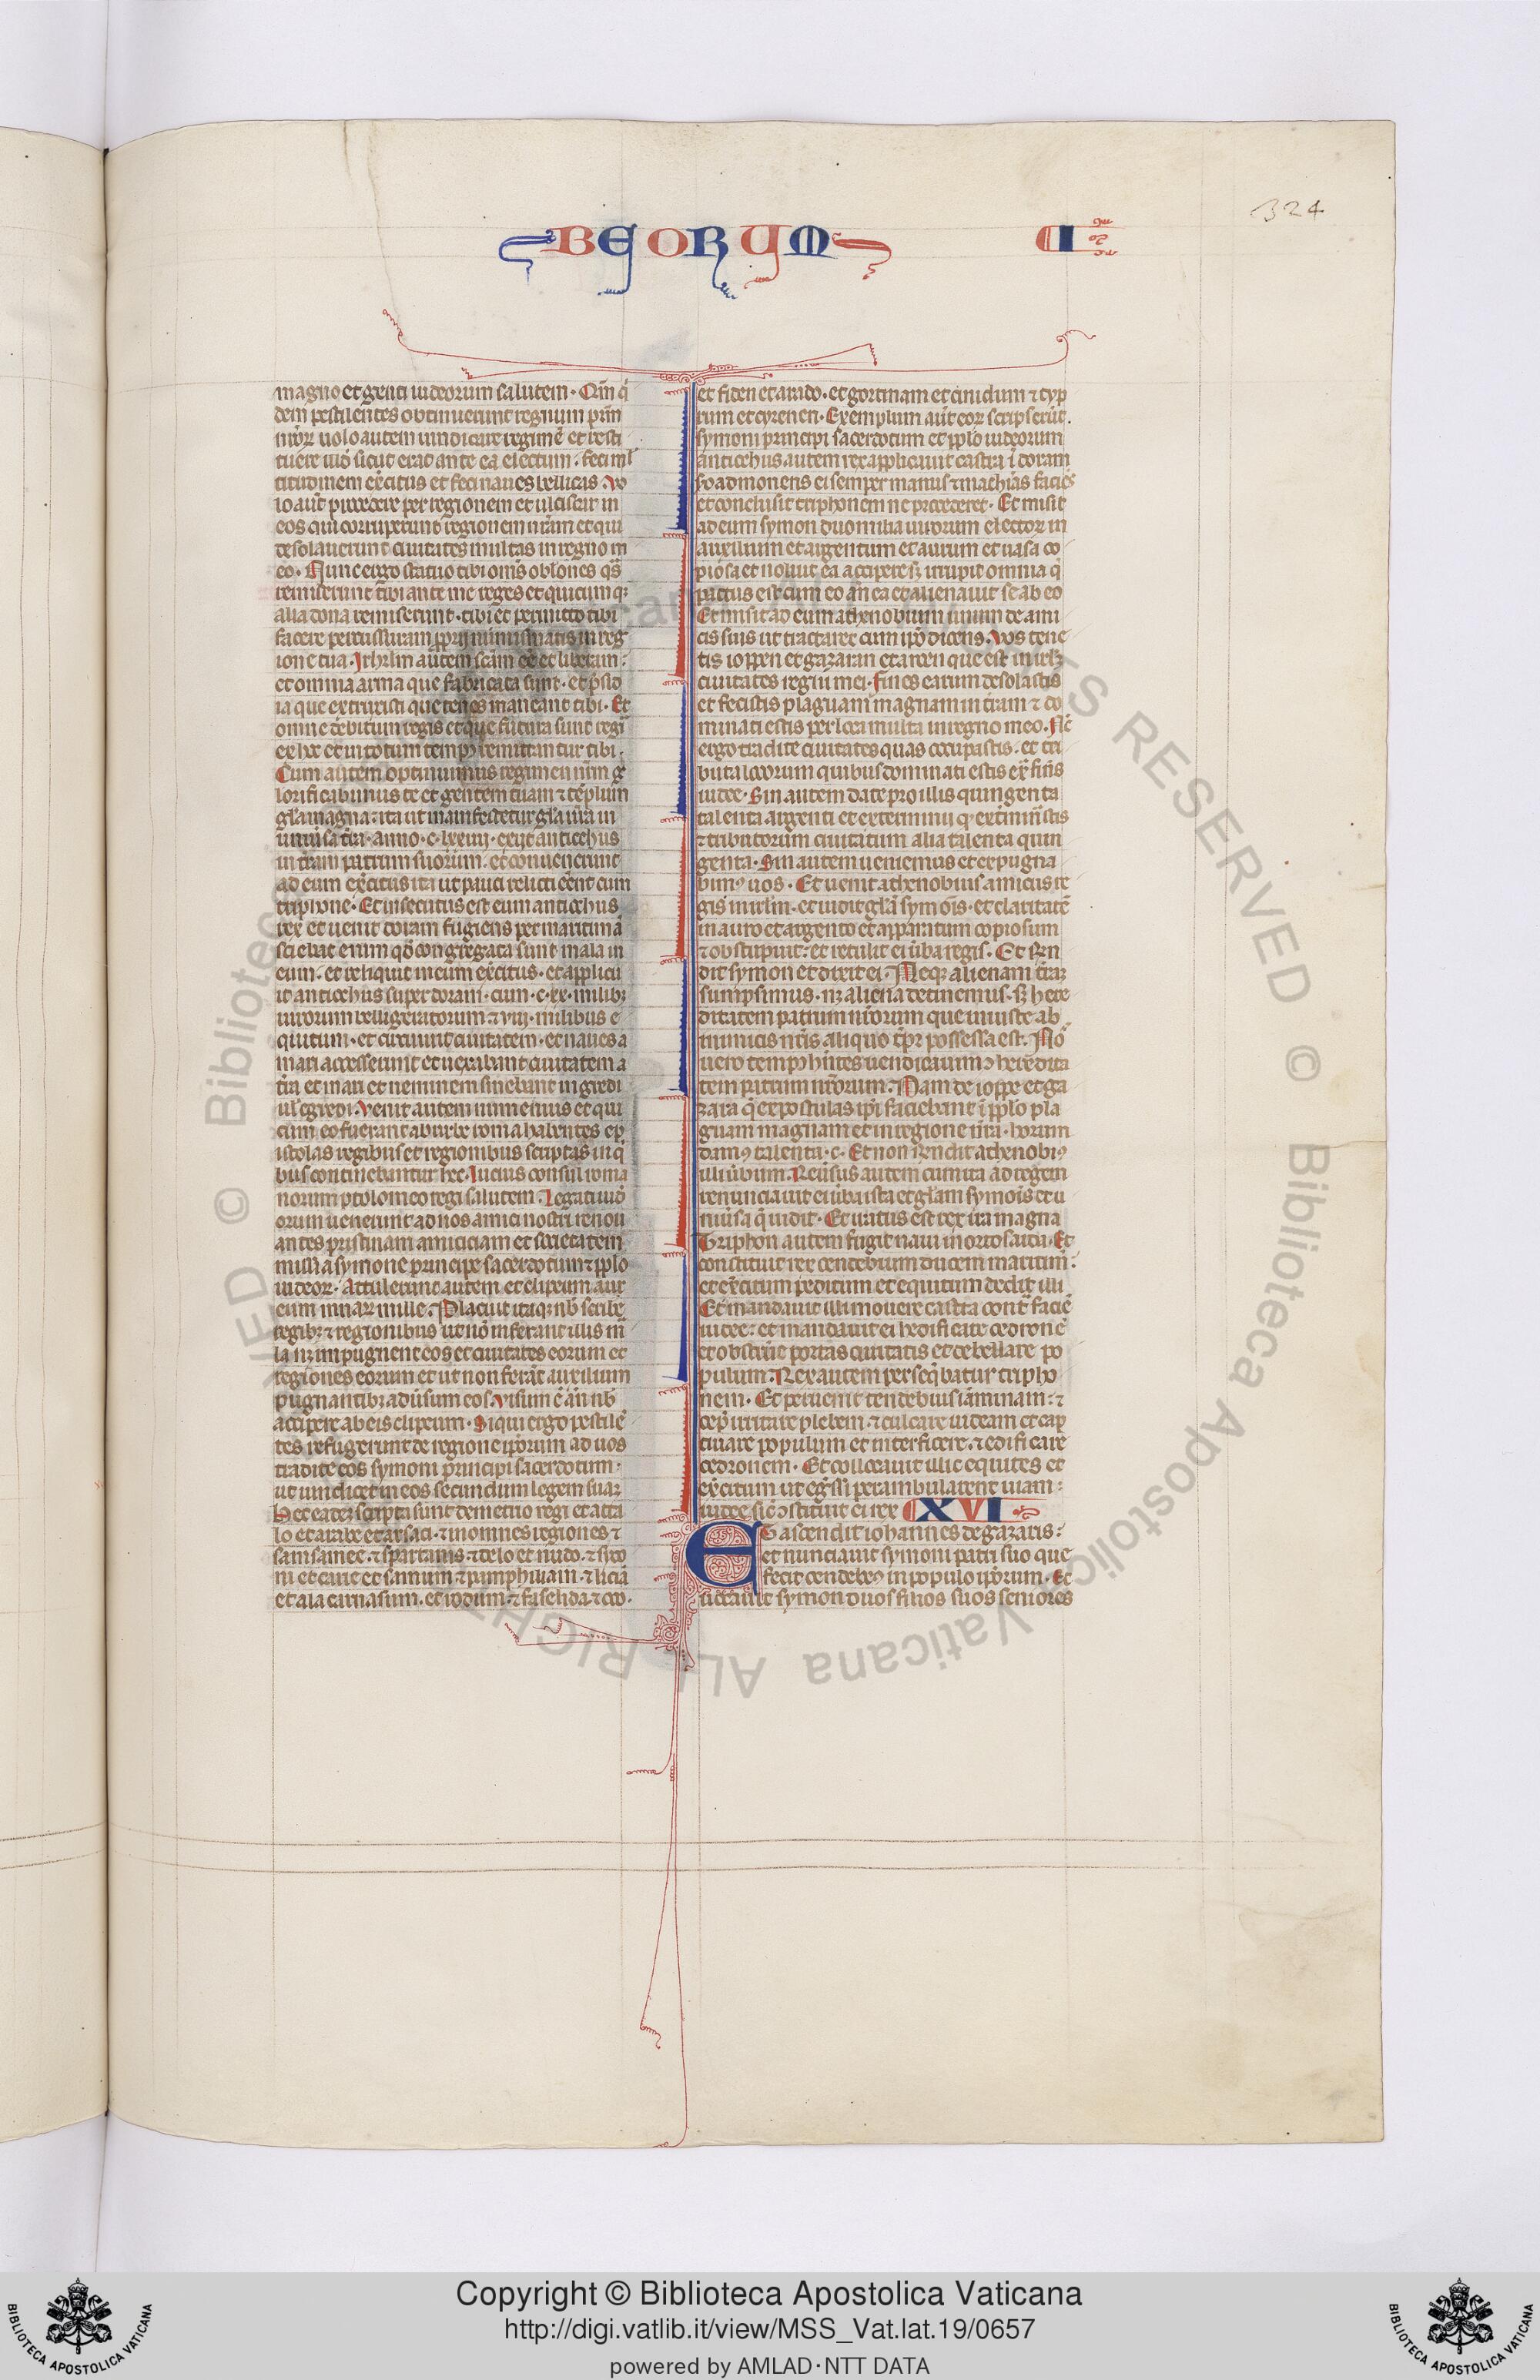 324
BEORUM I
magno et genti iudeorum salutem. Qm̄ q̇
dem pestilentes obtinuerunt regnum prīm
nr̄oꝝ uolo autem uindicare regnū et resti
tuere illud sicut erat ante ea electum. feci ml̄
titudinem ex̄citus et feci naues bellicas. Vo
lo aūt procedere per regionem et ulciscar in
eos qui corruperunt regionem nr̄am et qui
desolauerunt ciuitates multas in regno m
eo. Nunc ergo statuo tibi om̄s obl̄ones qͣs
remiserunt tibi ante me reges et quicumqꝫ
alia dona remiserunt. tibi et permitto tibi
facere percussuram pp̄rij numismatis in reg
ione tua. Irhrl̄m autem sc̄am eē et liberam:
et omnia arma que fabricata sunt. et p̄sid
ia que extruxisti que tenes maneant tibi. Et
omne debitum regis et que futura sunt regi
ex hoc et in totum tempꝰ remittantur tibi.
Cum autem optinuimus regnum nr̄m g
lorificabimus te et gentem tuam ⁊ templum
gl̄a magna: ita ut manifestetur gl̄a ur̄a in
uniuˀsa tr̄a. anno. c. lxxiiij. exijt anticchus
in tr̄am patrum suorum. et conuenerunt
ad eum ex̄citus ita ut pauci relicti eēnt cum
triphone. Et insecutus est eum anticchus
rex et uenit doram fugiens per maritimā
sciebat enim qd̄ congregata sunt mala in
eum. et reliquit in eum ex̄citus. et applicu
it anticchus super doram. cum. c. xx. milibꝫ
uirorum belligeratorum ⁊ viij. milibus e
quitum. et circuiuit ciuitatem. et naues a
mari accesserunt et uexabant ciuitatem a
tr̄a et mari et neminem sinebant ingredi
ul̄ egredi. Venit autem numenius et qui
cum eo fuerant ab urbe roma habentes ep̄
istolas regibus et regionibus scriptas in q̇
bus continebantur hec. Lucius consul roma
norum ptolomeo regi salutem. Legati iud
orum uenerunt ad nos amici nostri renou
antes pristinam amiciciam et societatem
missi a symone principe sacerdotum ⁊ pp̄lo
iudeoꝝ. Attulerunt autem et clipeum aur
eum mnarꝫ mille. Placuit itaqꝫ nb̄ scribē
regibꝫ ⁊ regionibus ut nō inferant illis m̄
la nꝫ impugnent eos et ciuitates eorum et
regiones eorum et ut non ferāt auxilium
pugnantibꝫ aduˀsum eos. Visum ē aūt nb̄
accipere ab eis clipeum. Siqui ergo pestilē
tes refugerunt de regione ip̄orum ad uos
tradite eos symoni principi sacerdotum.
ut uindicet in eos secundum legem suaꝫ
Hec eadeꝫ scripta sunt demetrio regi et atta
lo et arabe et arsaci. ⁊ in omnes regiones ⁊
samsamee. ⁊ spartanis ⁊ delo et mido. ⁊ sydo
ni et carie et samum ⁊ pamphiliam. ⁊ liciā
et alacarnasum. et rodum. ⁊ faselida. ⁊ coo.
et siden et arado. et gortinam et cnidum ⁊ cyp
rum et cyrenen. Exemplum aūt eoꝝ scripserūt.
symoni principi sacerdotum et pp̄lo iudeorum
anticchus autem rex applicauit castra ī doram
sc̄do admonens ei semper manus ⁊ machīas faciēs
et conclusit triphonem ne procederet. Et misit
ad eum symon duo milia uirorum electoꝝ in
auxilium et argentum et aurum et uasa co
piosa et noluit ea accipere sꝫ irrupit omnia q̄
pactus est cum eo an̄ ea et alienauit se ab eo
Et misit ad eum athenobium unum de ami
cis suis ut tractaret cum ip̄o dicens. Vos tene
tis ioppen et gazaran et arcen que est in irl̄m
ciuitates regni mei. fines earum desolastis
et fecistis plagam magnam in tr̄am ⁊ do
minati estis per loca multa in regno meo. Nc̄
ergo tradite ciuitates quas occupastis. et tri
buta locorum quibus dominati estis ext̄ fines
iudee. Sin autem date pro illis quingenta
talenta argenti et exterminij qͦ extiminastis
⁊ tributorum ciuitatum alia talenta quin
genta. Sin autem ueniemus et expugna
bimꝰ uos. Et uenit athenobius amicus re
gis in irl̄m. et uidit gl̄ā symōis. et claritatē
in auro et argento et apparatum copiosum
⁊ obstupuit: et retulit ei uˀba regis. Et r̄sn
dit symon et dixit ei. Neqꝫ alienam tr̄aꝫ
sumpsimus. nꝫ aliena detinemus. sꝫ here
ditatem patrum nr̄orum que iniuste ab
inimicis nr̄is aliquo tp̄r possessa est. Nos
uero tempꝰ hn̄tes uendicamꝰ heredita
tem patrum nr̄orum. Nam de ioppe et ga
zara q̄ expostulas ip̄i faciebant ī pp̄lo pla
gam magnam et in regione nr̄a. horum
damꝰ talenta. c. Et non r̄sndit athenobiꝰ
illi uˀbum. Reuˀsus autem cum ira ad regem
renunciauit ei uˀba ista et gl̄am symōis et u
niuˀsa q̄ uidit. Et iratus est rex ira magna
Triphon autem fugit naui in ortosaida. Et
constituit rex cendebeum ducem maritim̄:
et ex̄citum peditum et equitum dedit illi
Et mandauit illi mouere castra cont̄ faciē
iudee: et mandauit ei hedificare cedronē
et obstr̄e portas ciuitatis et debellare po
pulum. Rex autem perseq̄batur tripho
nem. Et peruenit cendebeus iaminam: ⁊
cep̄ irritare plebem. ⁊ culcare iudeam et cap
tiuare populum et interficere. ⁊ edificare
cedronem. Et collocauit illic equites et
ex̄citum ut egressi perambularent uiam:
iudee sic ↄstituit ei rex XVI
Et ascendit iohannes de gazaris:
et nunciauit symoni patri suo que
fecit cendebeꝰ in populo ip̄orum. Et
uocauit symon duos filios suos seniores
Copyright © Biblioteca Apostolica Vaticana
http://digi.vatlib.it/view/MSS_Vat.lat.19/0657
powered by AMLAD·NTT DATA